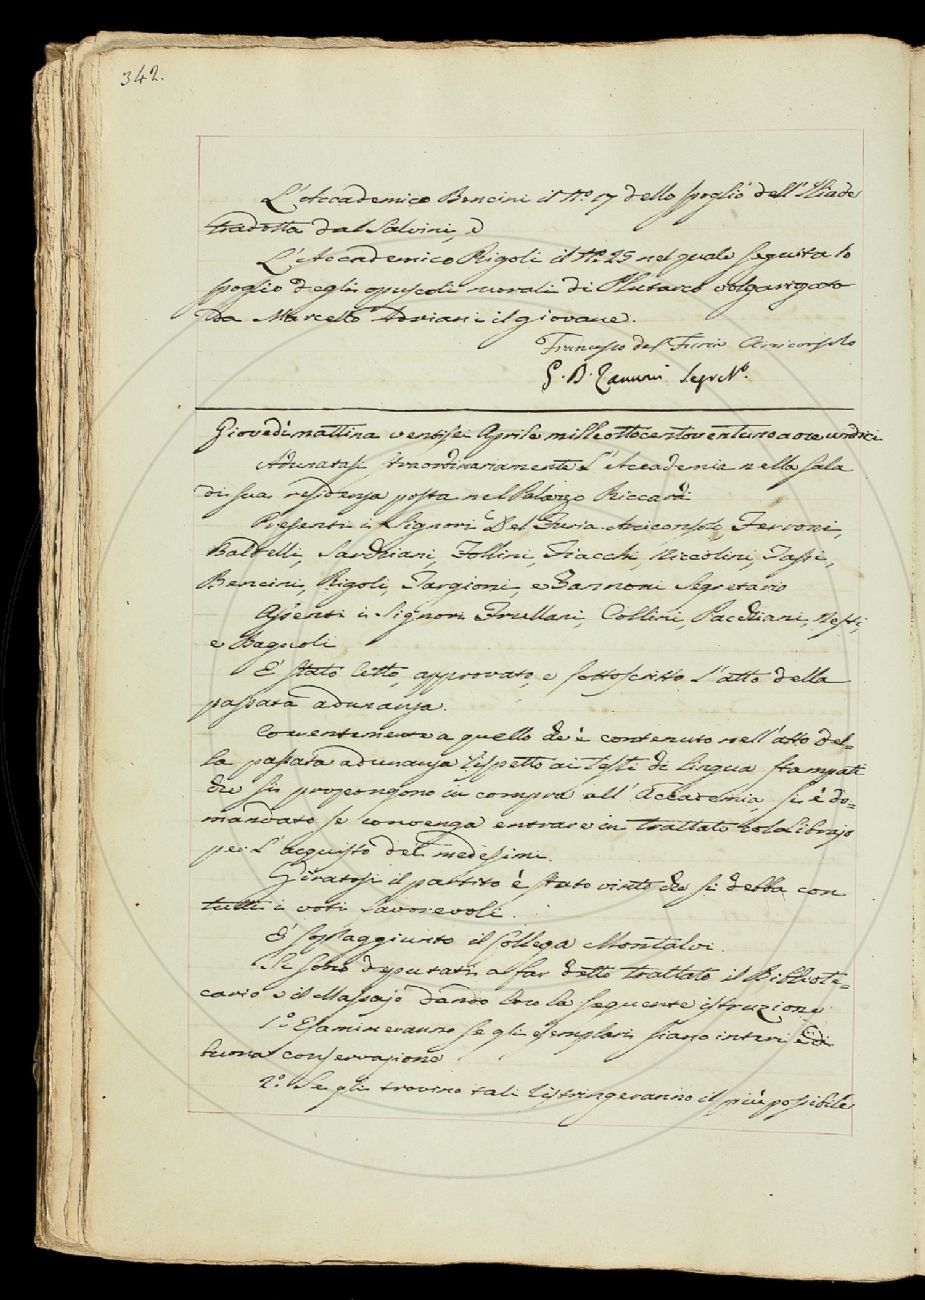 342.
L'Accademico Bencini il N.º 17 dello spoglio dell'Iliade
tradotta dal Salvini, e
L'Accademico Rigoli il N.º 25 nel quale seguita lo
spoglio degli opuscoli morali di Plutarco volgarizzato
da Marcello Adriani il giovane.
Francesco del Furia Arciconsolo
G. B. Zannoni Segret.º
Giovedì mattina ventisei Aprile mille ottocentoventuno a ore undici
Adunatasi straordinariamente l'Accademia nella sala
di sua residenza posta nel Palazzo Riccardi
Presenti i Signori Del Furia Arciconsolo Ferroni,
Baldelli, Sarchiani, Follini, Fiacchi, Niccolini, Tassi,
Bencini, Rigoli, Targioni, e Zannoni Segretario
Assenti i Signori Frullani, Collini, Pacchiani, Nesti,
e Bagnoli
È stato letto, approvato, e sottoscritto l'atto della
passata adunanza.
Coerentemente a quello che è contenuto nell'atto del=
la passata adunanza rispetto ai Testi di lingua stampati
che si propongono in compra all'Accademia, si è do=
mandato se convenga entrare in trattato col Librajo
per l'acquisto dei medesimi.
Giratosi il partito è stato vinto che si debba con
tutti i voti favorevoli.
È sopraggiunto il collega Montalvi.
Si sono deputati a far detto trattato il Bibliote=
cario e il Massajo dando loro la seguente istruzione
1.º Esamineranno se gli esemplari siano interi e di
buona conservazione
2.º Se gli trovino tali ristringeranno il più possibile